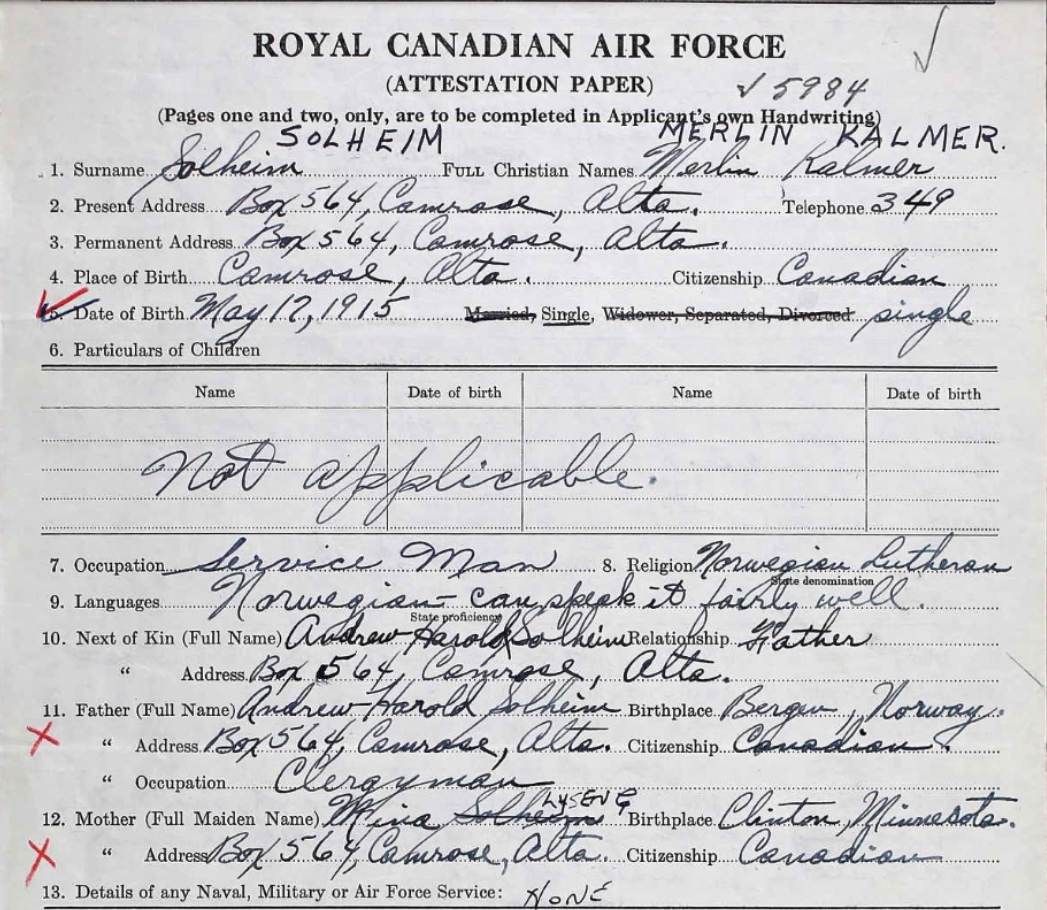 ROYAL CANADIAN AIR FORCE
(ATTESTATION PAPER)
√5984
(Pages one and two, only, are to be completed in Applicant's own Handwriting)
SOLHEIM MERLIN KALMER.
1. Surname Solheim FULL Christian Names Merlin Kalmer
2. Present Address Box 564, Camrose, Alta. Telephone 349
3. Permanent Address Box 564, Camrose, Alta.
4. Place of Birth Camrose, Alta. Citizenship Canadian
5. Date of Birth May 17, 1915 Married, Single, Widower, Separated, Divorced single
6. Particulars of Children
Name Date of birth Name Date of birth
Not applicable.
7. Occupation Service Man 8. Religion Norwegian Lutheran
State denomination
9. Languages Norwegian - can speak it fairly well.
State proficiency
10. Next of Kin (Full Name) Andrew Harold Solheim Relationship Father
" Address Box 564, Camrose, Alta.
11. Father (Full Name) Andrew Harold Solheim Birthplace Bergen, Norway.
" Address Box 564, Camrose, Alta. Citizenship Canadian.
" Occupation Clergyman
LYSENG
12. Mother (Full Maiden Name) Mina Solheim Birthplace Clinton, Minnesota.
" Address Box 564, Camrose, Alta. Citizenship Canadian
13. Details of any Naval, Military or Air Force Service: NONE